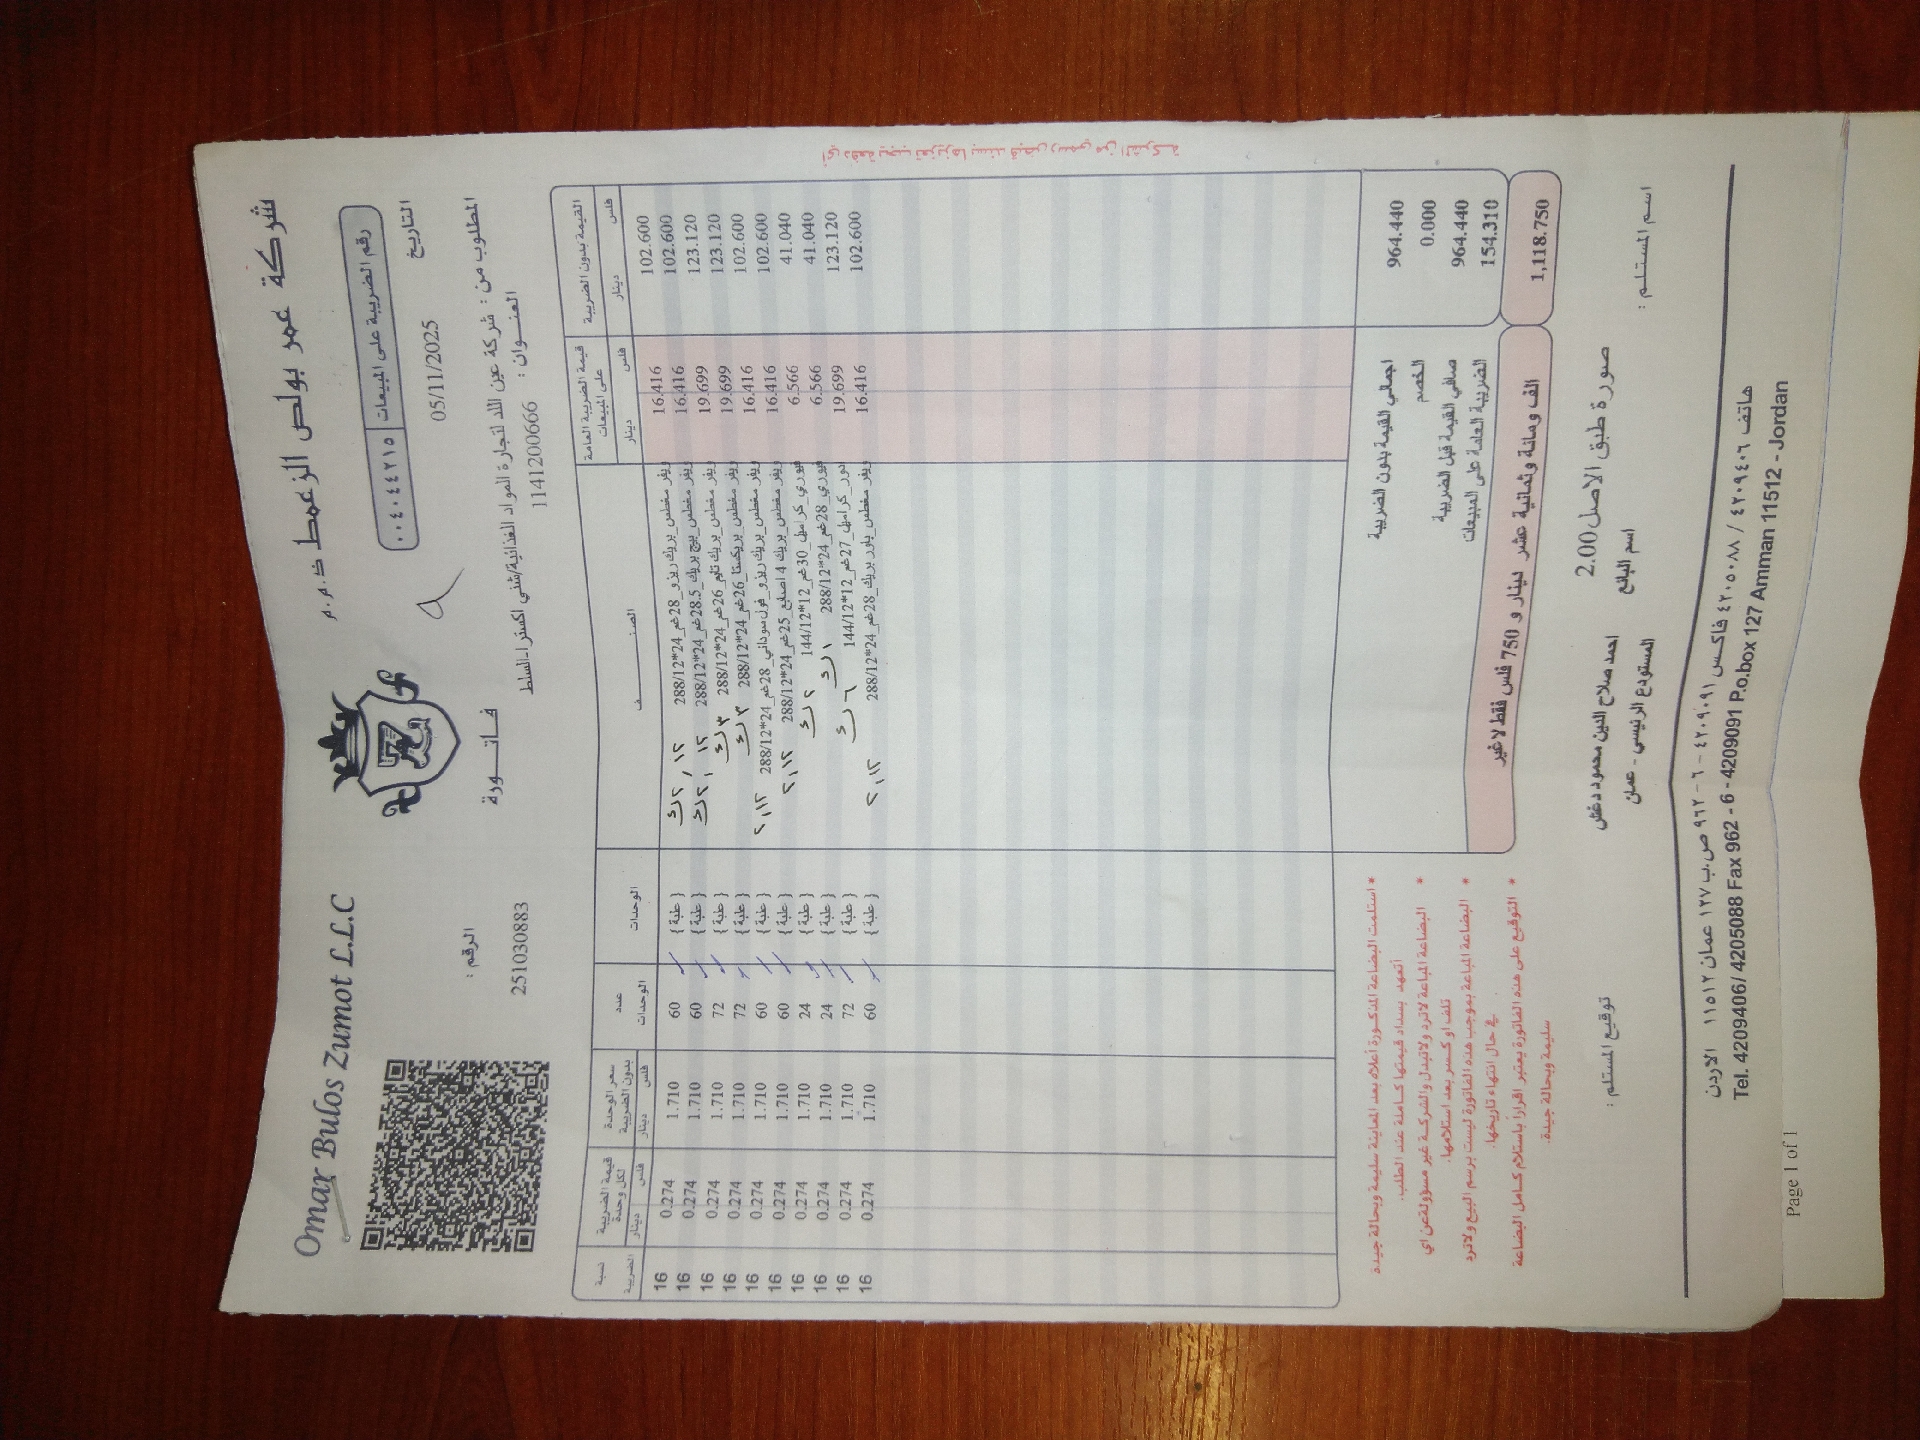 شركة عمر بولص الزعمط ذ.م.م
Omar Bulos Zumot L.L.C
رقم الضريبة على المبيعات ٠٠٤٠٤٤٢١٥
التاريخ 05/11/2025
فاتورة
الرقم :
251030883
المطلوب من : شركة عين اللد لتجارة المواد الغذائية/شلني اكسترا-السلط
العنوان : 1141200666
القيمة بدون الضريبة قيمة الضريبة العامة على المبيعات الصنف الوحدات عدد الوحدات سعر الوحدة بدون الضريبة قيمة الضريبة لكل وحدة نسبة الضريبة
فلس دينار فلس دينار فلس دينار فلس دينار
102.600 16.416 ويفر مغطس_بريك ريزو_28غم_24*288/12 { علبة } 60 1.710 0.274 16
102.600 16.416 ويفر مغطس_بيج بريك_28.5غم_24*288/12 { علبة } 60 1.710 0.274 16
123.120 19.699 ويفر مغطس_بريك تالم_26غم_24*288/12 { علبة } 72 1.710 0.274 16
123.120 19.699 ويفر مغطس_بريكستا_26غم_24*288/12 { علبة } 72 1.710 0.274 16
102.600 16.416 ويفر مغطس_بريك ريزو_فول سوداني_28غم_24*288/12 { علبة } 60 1.710 0.274 16
102.600 16.416 ويفر مغطس_بريك 4 اصابع_25غم_24*288/12 { علبة } 60 1.710 0.274 16
41.040 6.566 كراميل_30غم_12*144/12 { علبة } 24 1.710 0.274 16
41.040 6.566 28غم_24*288/12 { علبة } 24 1.710 0.274 16
123.120 19.699 كراميل_27غم_12*144/12 { علبة } 72 1.710 0.274 16
102.600 16.416 ويفر مغطس_باور بريك_28غم_24*288/12 { علبة } 60 1.710 0.274 16
اجمالي القيمة بدون الضريبة 964.440
الخصم 0.000
صافي القيمة قبل الضريبة 964.440
الضريبة العامة على المبيعات 154.310
الف ومائة وثمانية عشر دينار و 750 فلس فقط لا غير 1,118.750
* استلمت البضاعة المذكورة أعلاه بعد المعاينة سليمة وبحالة جيدة
أتعهد بسداد قيمتها كاملة عند الطلب.
* البضاعة المباعة لاترد ولاتبدل والشركة غير مسؤولة عن اي
تلف او كسر بعد استلامها.
* البضاعة المباعة بموجب هذه الفاتورة ليست برسم البيع ولاترد
في حال انتهاء تاريخها.
* التوقيع على هذه الفاتورة يعتبر اقرارا باستلام كامل البضاعة
سليمة وبحالة جيدة.
أي دفعة يجب تعزيزها بسند قبض رسمي من الشركة
صورة طبق الاصل 2.00
اسم المستلم :
اسم البائع
احمد صلاح الدين محمود دغش
المستودع الرئيسي - عمان
توقيع المستلم :
هاتف ٤٢٠٩٤٠٦ / ٤٢٠٥٠٨٨ فاكس ٤٢٠٩٠٩١ - ٦ - ٩٦٢ ص.ب ١٢٧ عمان ١١٥١٢ الاردن
Tel. 4209406/ 4205088 Fax 962 - 6 - 4209091 P.o.box 127 Amman 11512 - Jordan
Page 1 of 1